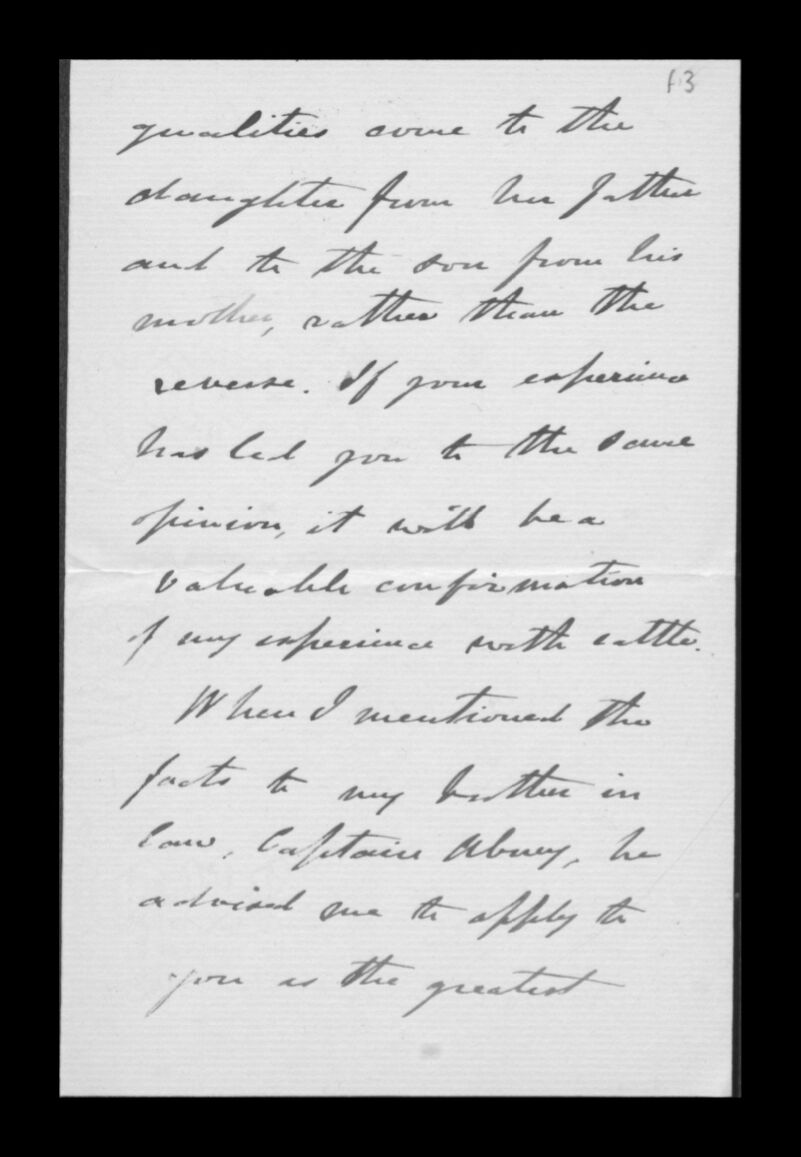 f.3
qualities come to the
daughter from her father
and to the son from his
mother, rather than the
reverse. If your experience
has led you to the same
opinion, it will be a
valuable confirmation
of my experience with cattle.
When I mentioned the
facts to my brother in
law, Captain Abney, he
advised me to apply to
you as the greatest